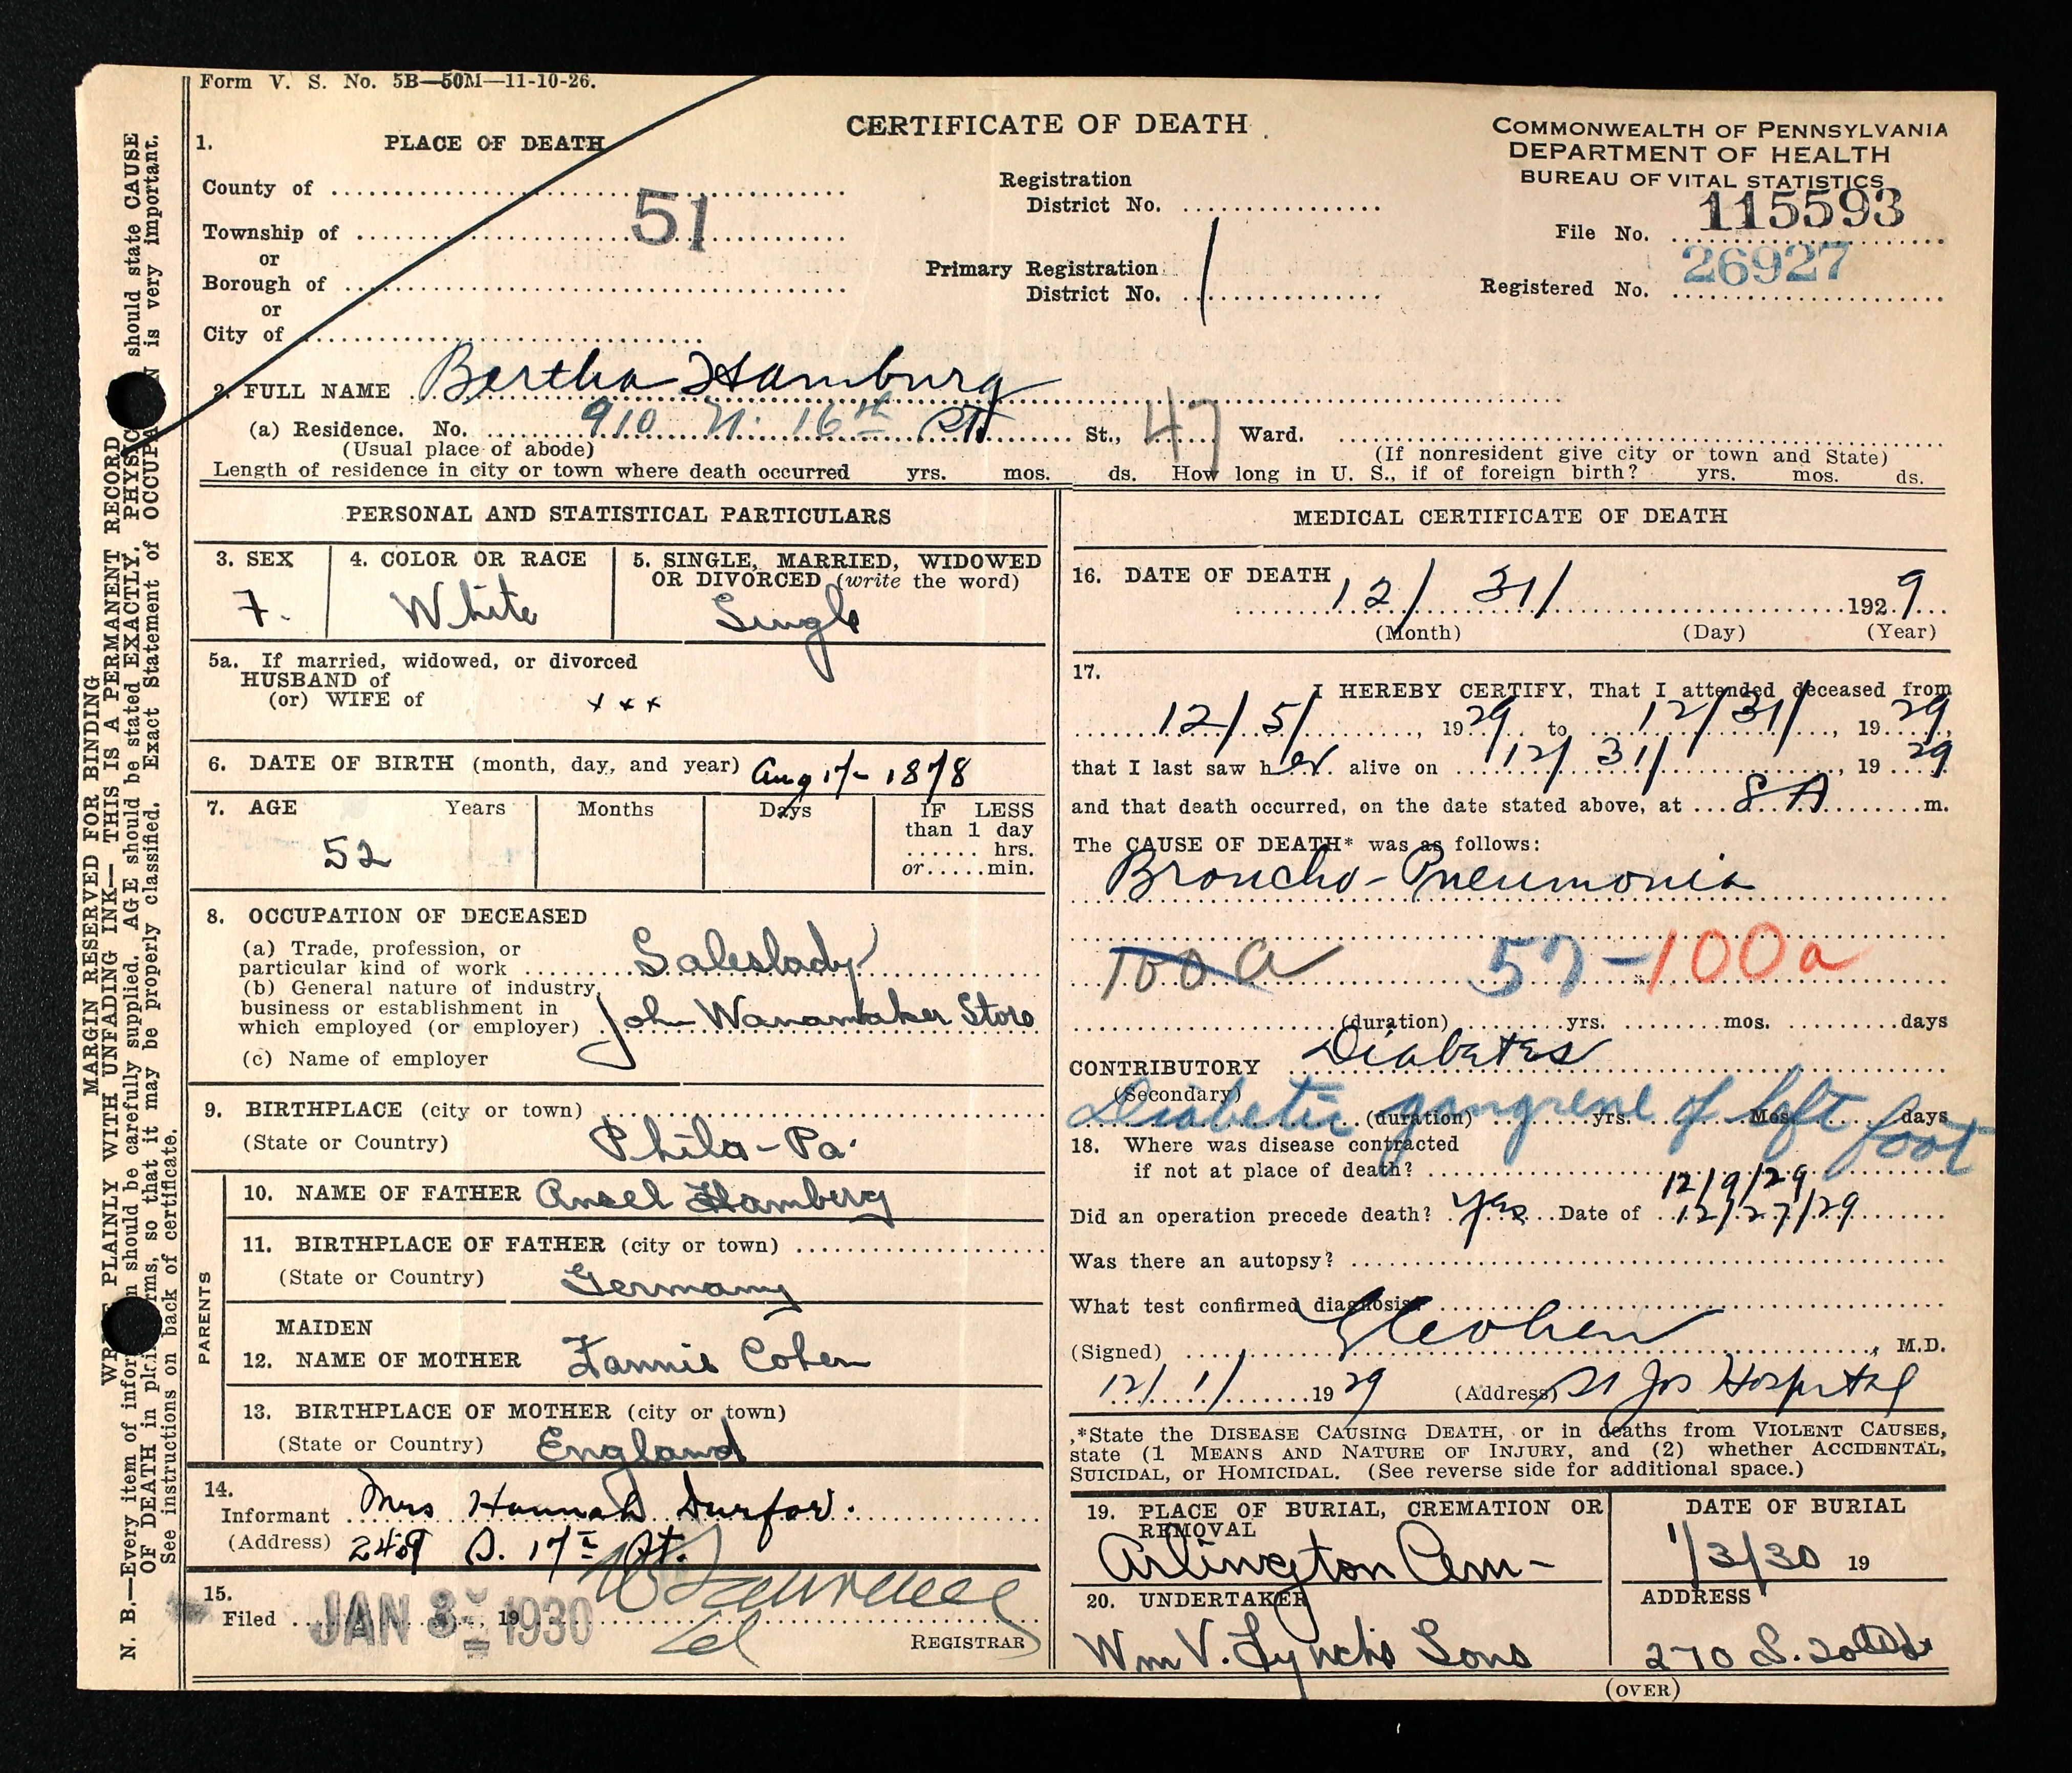 Form V. S. No. 5B—50M—11-10-26.
CERTIFICATE OF DEATH
COMMONWEALTH OF PENNSYLVANIA
DEPARTMENT OF HEALTH
BUREAU OF VITAL STATISTICS
1. PLACE OF DEATH
County of
Township of
or
Borough of
or
City of
51
Registration
District No.
Primary Registration
District No. 1
File No. 115593
Registered No. 26927
2. FULL NAME Bertha Hamburg
(a) Residence. No. 910 N. 16th St St., 47 Ward.
(Usual place of abode) (If nonresident give city or town and State)
Length of residence in city or town where death occurred yrs. mos. ds. How long in U. S., if of foreign birth? yrs. mos. ds.
PERSONAL AND STATISTICAL PARTICULARS
3. SEX 4. COLOR OR RACE 5. SINGLE, MARRIED, WIDOWED
OR DIVORCED (write the word)
F. White Single
5a. If married, widowed, or divorced
HUSBAND of
(or) WIFE of x x x
6. DATE OF BIRTH (month, day, and year) Aug 17- 1878
7. AGE Years Months Days IF LESS
than 1 day
hrs.
or min.
52
8. OCCUPATION OF DECEASED
(a) Trade, profession, or
particular kind of work Saleslady
(b) General nature of industry,
business or establishment in
which employed (or employer) John Wanamaker Store
(c) Name of employer
9. BIRTHPLACE (city or town)
(State or Country) Phila-Pa.
PARENTS
10. NAME OF FATHER Ansel Hamberg
11. BIRTHPLACE OF FATHER (city or town)
(State or Country) Germany
MAIDEN
12. NAME OF MOTHER Fannie Cohen
13. BIRTHPLACE OF MOTHER (city or town)
(State or Country) England
14.
Informant Mrs Hannah Durfor.
(Address) 249 S. 17th St.
15.
Filed JAN 3 1930, 19
REGISTRAR
MEDICAL CERTIFICATE OF DEATH
16. DATE OF DEATH
12/ 31/ 1929
(Month) (Day) (Year)
17.
I HEREBY CERTIFY, That I attended deceased from
12/5/, 1929 to 12/31/, 1929,
that I last saw her alive on 12/ 31/, 1929
and that death occurred, on the date stated above, at 8 A m.
The CAUSE OF DEATH* was as follows:
Broncho-Pneumonia
100a 57-100a
(duration) yrs. mos. days
CONTRIBUTORY Diabetes
(Secondary)
Diabetic gangrene of left foot
(duration) yrs. Mos. days
18. Where was disease contracted
if not at place of death?
12/9/29
Did an operation precede death? Yes Date of 12/27/29
Was there an autopsy?
What test confirmed diagnosis?
(Signed) , M.D.
12/ 1/ 1929 (Address) St Jos Hospital
*State the DISEASE CAUSING DEATH, or in deaths from VIOLENT CAUSES,
state (1 MEANS AND NATURE OF INJURY, and (2) whether ACCIDENTAL,
SUICIDAL, or HOMICIDAL. (See reverse side for additional space.)
19. PLACE OF BURIAL, CREMATION OR
REMOVAL
Arlington Cem-
DATE OF BURIAL
1/3/30 19
20. UNDERTAKER
Wm V. Lynch's Sons
ADDRESS
270 S. 20th St
(OVER)
MARGIN RESERVED FOR BINDING
WRITE PLAINLY WITH UNFADING INK—THIS IS A PERMANENT RECORD
N. B.—Every item of information should be carefully supplied. AGE should be stated EXACTLY. PHYSIC should state CAUSE
OF DEATH in plain terms, so that it may be properly classified. Exact Statement of OCCUPA N is very important.
See instructions on back of certificate.